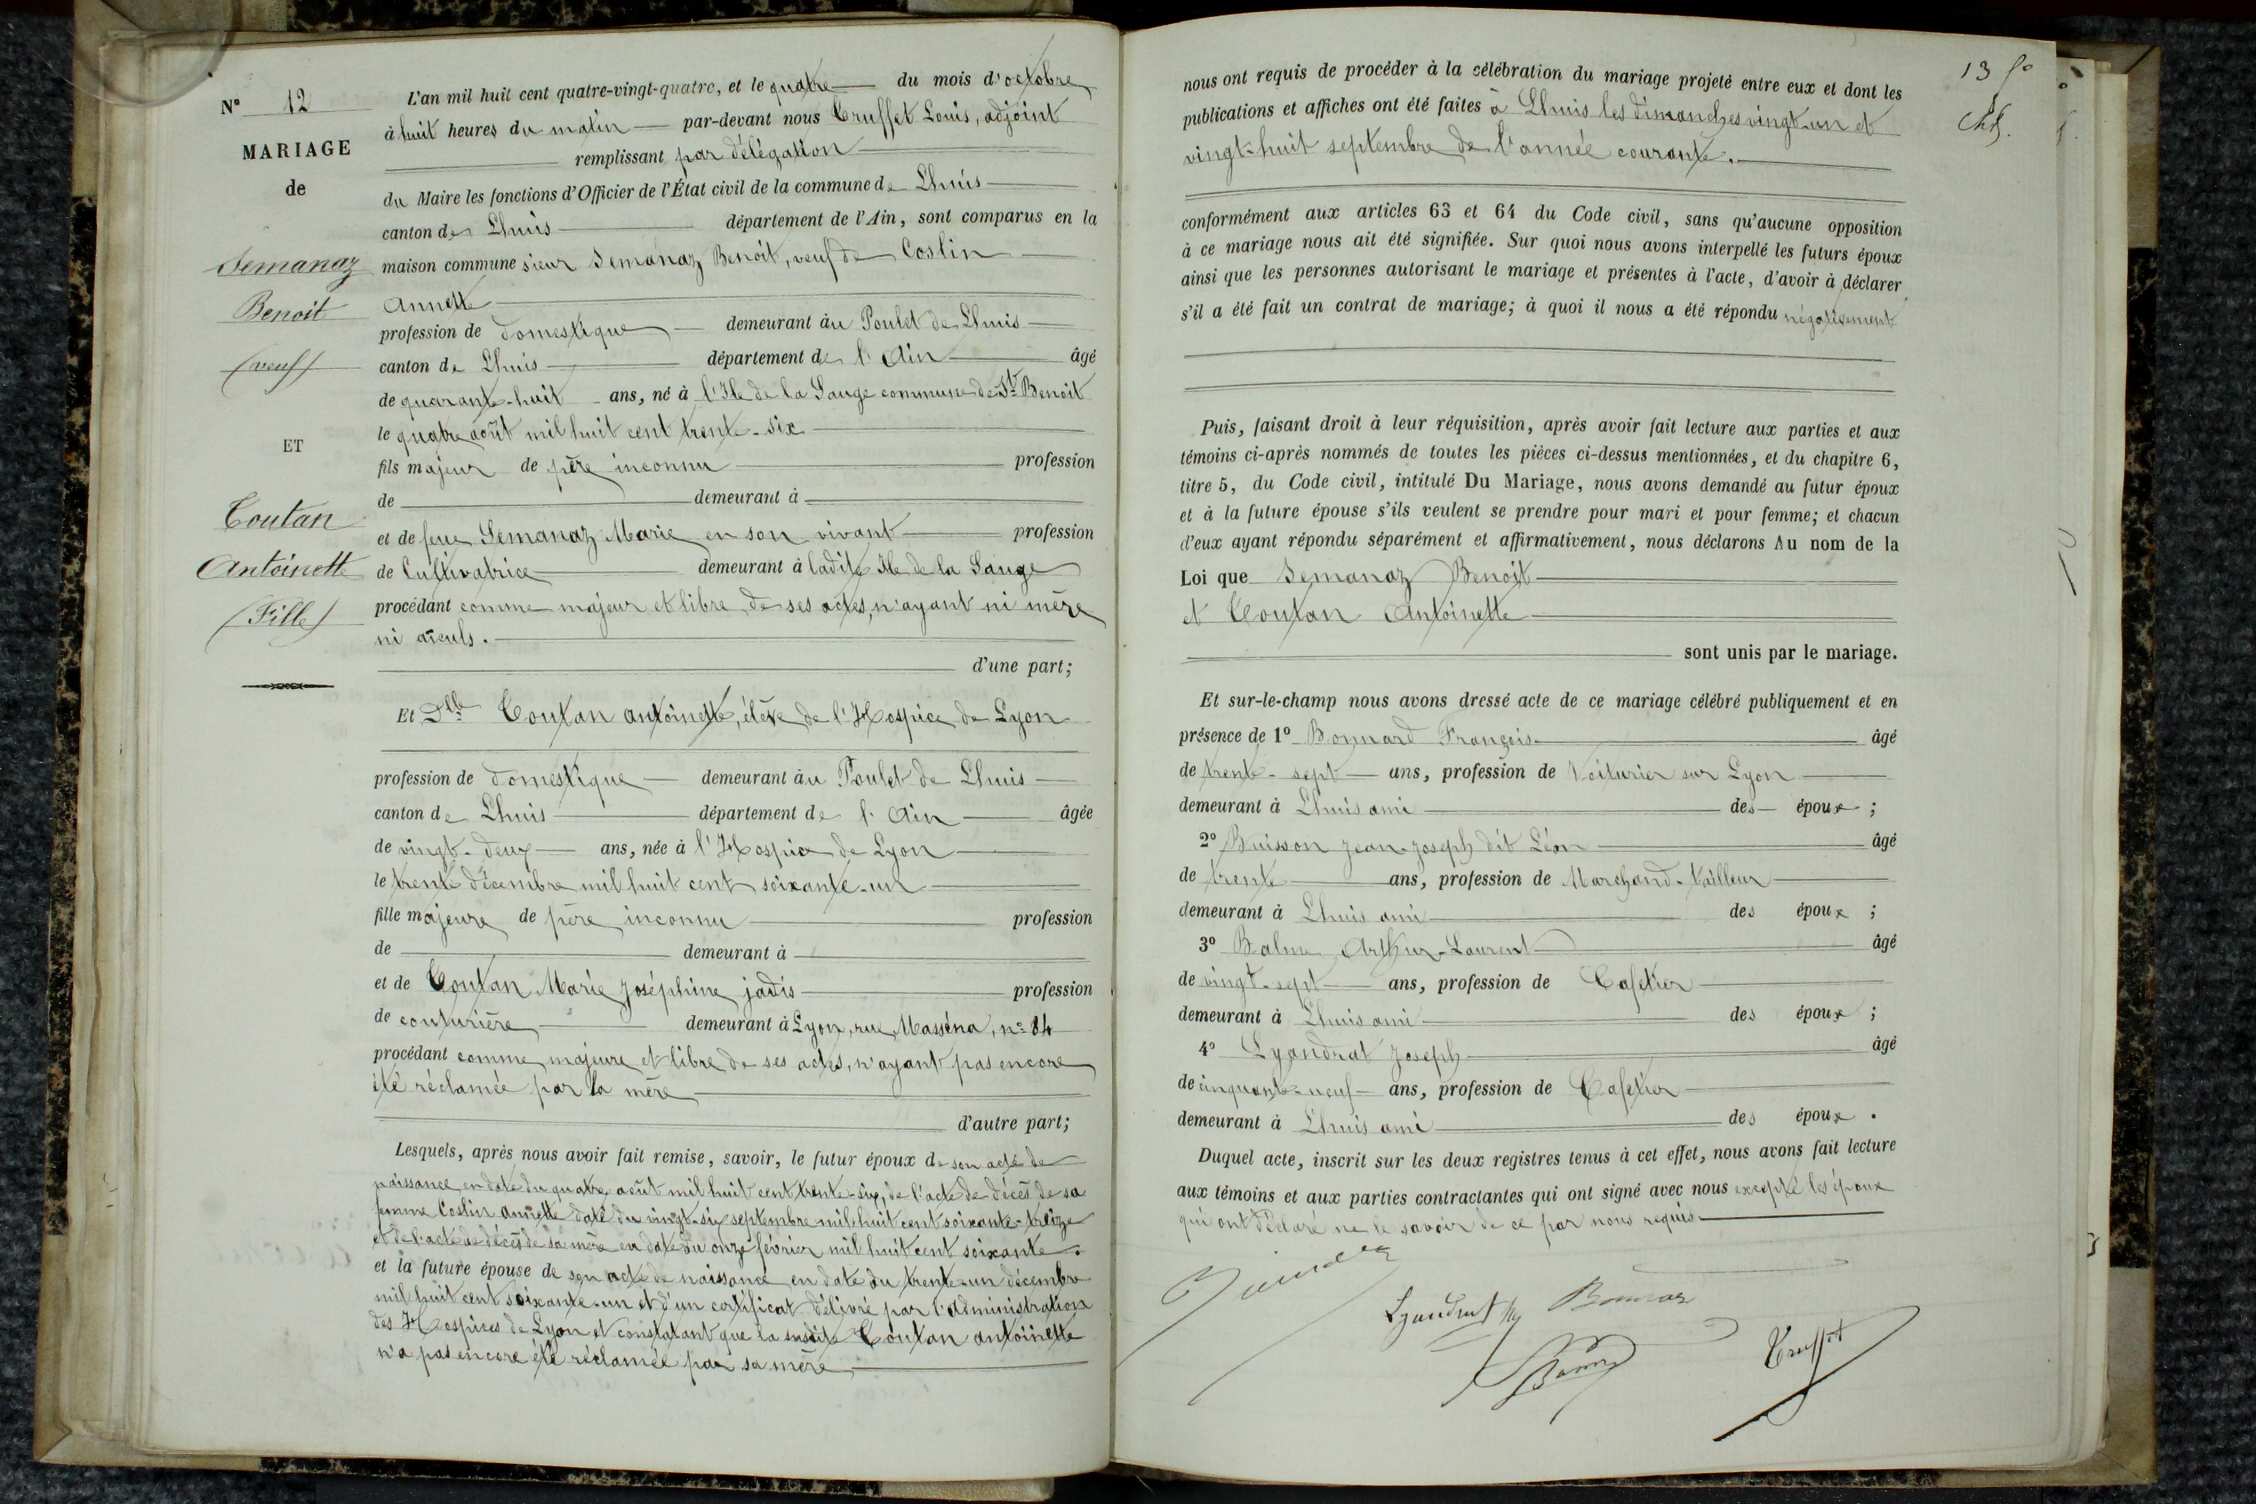 N° 12
MARIAGE
de
Semanaz
Benoit
(veuf)
ET
Coutan
Antoinette
(Fille)
L'an mil huit cent quatre-vingt-quatre, et le quatre du mois d'octobre
à huit heures du matin par-devant nous Truffet Louis, adjoint
remplissant par délégation
du Maire les fonctions d'Officier de l'État civil de la commune de Lhuis
canton de Lhuis département de l'Ain, sont comparus en la
maison commune sieur Semanaz Benoit, veuf de Costin
Annette
profession de domestique demeurant au Poulet de Lhuis
canton de Lhuis département de l'Ain âgé
de quarante-huit ans, né à l'Ile de la Sauge commune de St Benoit
le quatre août mil huit cent trente-six
fils majeur de père inconnu profession
de demeurant à
et de feue Semanaz Marie en son vivant profession
de Cultivatrice demeurant à ladite Ile de la Sauge
procédant comme majeur et libre de ses actes, n'ayant ni mère
ni aïeuls.
d'une part;
Et Dlle Coutan antoinette, élève de l'Hospice de Lyon
profession de domestique demeurant au Poulet de Lhuis
canton de Lhuis département de l'Ain âgée
de vingt-deux ans, née à l'Hospice de Lyon
le trente décembre mil huit cent soixante-un
fille majeure de père inconnu profession
de demeurant à
et de Coutan Marie Joséphine jadis profession
de couturière demeurant à Lyon, rue Masséna, n° 84
procédant comme majeure et libre de ses actes, n'ayant pas encore
été réclamée par la mère
d'autre part;
Lesquels, après nous avoir fait remise, savoir, le futur époux de son acte de
naissance en date du quatre août mil huit cent trente-six, de l'acte de décès de sa
femme Costin annette daté du vingt-six septembre mil huit cent soixante-treize
et de l'acte de décès de sa mère en date du onze février mil huit cent soixante.
et la future épouse de son acte de naissance en date du trente-un décembre
mil huit cent soixante-un et d'un certificat délivré par l'administration
des Hospices de Lyon et constatant que la susdite Coutan antoinette
n'a pas encore été réclamée par sa mère
13 fo
nous ont requis de procéder à la célébration du mariage projeté entre eux et dont les
publications et affiches ont été faites à Lhuis les dimanches vingt-un et
vingt-huit septembre de l'année courante.
conformément aux articles 63 et 64 du Code civil, sans qu'aucune opposition
à ce mariage nous ait été signifiée. Sur quoi nous avons interpellé les futurs époux
ainsi que les personnes autorisant le mariage et présentes à l'acte, d'avoir à déclarer
s'il a été fait un contrat de mariage; à quoi il nous a été répondu négativement
Puis, faisant droit à leur réquisition, après avoir fait lecture aux parties et aux
témoins ci-après nommés de toutes les pièces ci-dessus mentionnées, et du chapitre 6,
titre 5, du Code civil, intitulé Du Mariage, nous avons demandé au futur époux
et à la future épouse s'ils veulent se prendre pour mari et pour femme; et chacun
d'eux ayant répondu séparément et affirmativement, nous déclarons Au nom de la
Loi que Semanaz Benoit
et Coutan Antoinette
sont unis par le mariage.
Et sur-le-champ nous avons dressé acte de ce mariage célébré publiquement et en
présence de 1° Bonnard François âgé
de trente-sept ans, profession de Voiturier sur Lyon
demeurant à Lhuis ami des époux ;
2° Buisson Jean-Joseph dit Léon âgé
de trente ans, profession de Marchand-Tailleur
demeurant à Lhuis ami des époux ;
3° Balme Arthur-Laurent âgé
de vingt-sept ans, profession de Cafetier
demeurant à Lhuis ami des époux ;
4° Lyandrat Joseph âgé
de cinquante-neuf ans, profession de Cafetier
demeurant à Lhuis ami des époux .
Duquel acte, inscrit sur les deux registres tenus à cet effet, nous avons fait lecture
aux témoins et aux parties contractantes qui ont signé avec nous excepté les époux
qui ont déclaré ne le savoir de ce par nous requis
Lyandrat
Truffet